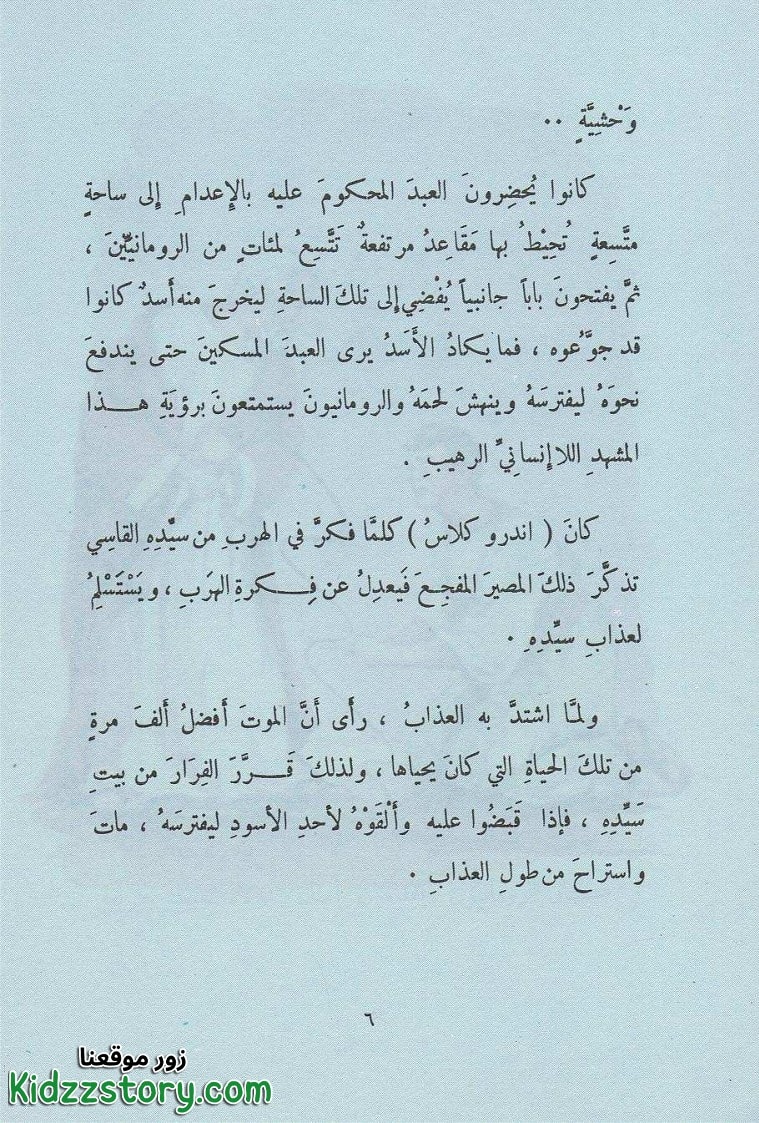 وَحْشِيَّةٍ ..
كانوا يُحضِرونَ العبدَ المحكومَ عليه بالإعدامِ إلى ساحةٍ
متَّسِعةٍ تُحيْطُ بها مَقَاعِدُ مرتفعةٌ تَتَّسِعُ لمئاتٍ من الرومانيِّينَ ،
ثمَّ يفتحونَ باباً جانبياً يُفْضِي إلى تلكَ الساحةِ ليخرجَ منه أَسدٌ كانوا
قد جوَّعوه ، فما يكادُ الأَسَدُ يرى العبدَ المسكينَ حتى يندفعَ
نحوَهُ ليفترسَهُ وينهشَ لحمَهُ والرومانيونَ يستمتعونَ برؤيَةِ هـذا
المشهدِ اللاإنسانيِّ الرهيبِ .
كانَ ( اندرو كلاسُ ) كلمَّا فكرَّ في الهربِ من سيِّدِهِ القاسي
تذكَّرَ ذلكَ المصيرَ المفجِعَ فَيعدِلُ عن فِـكرةِ الهرَبِ ، ويَسْتَسْلِمُ
لعذابِ سيِّدِهِ .
ولمَّا اشتدَّ به العذابُ ، رأى أَنَّ الموتَ أَفضلُ أَلفَ مرةٍ
من تلكَ الحياةِ التي كانَ يحياها ، ولذلكَ قَـرَّرَ الفِرَارَ من بيتِ
سَيِّدِهِ ، فإذا قَبَضُوا عليه وأَلْقَوْهُ لأحدِ الأسودِ ليفترسَهُ ، ماتَ
واستراحَ من طولِ العذابِ .
٦
زور موقعنا
Kidzzstory.com